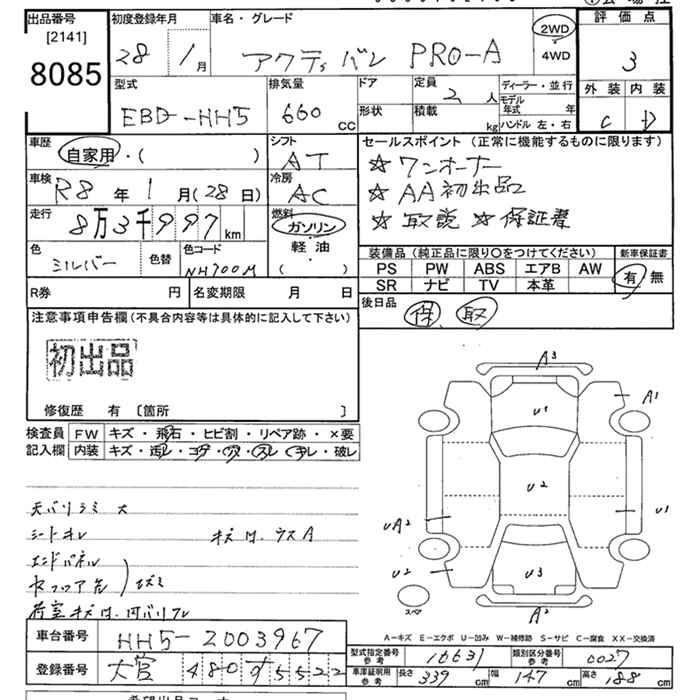 出品番号 [2141] 8085
初度登録年月 28 1月
車名・グレード アクティバン PRO-A
2WD 4WD
評価点 3
外装 内装 C D
型式 EBD-HH5
排気量 660 CC
ドア 形状
定員 2人
積載 kg
ディーラー・並行
モデル年式 年
ハンドル 左・右
車歴 自家用・( )
シフト AT
セールスポイント (正常に機能するものに限ります)
☆ワンオーナー
☆AA初出品
☆取説 ☆保証書
車検 R8年1月(28日)
冷房 AC
走行 8万3千997km
燃料 ガソリン 軽・油 ( )
色 シルバー 色替
色コード NH700M
装備品 (純正品に限り○をつけてください)
新車保証書 有 無
PS PW ABS エアB AW
SR ナビ TV 本革
R券 円 名変期限 月 日
後日品 保 取
注意事項申告欄 (不具合内容等は具体的に記入して下さい)
初出品
修復歴 有 〔箇所 〕
検査員 FW キズ・飛石・ヒビ割・リペア跡・×要
記入欄 内装 キズ・汚レ・コゲ・穴・スレ・チレ・破レ
天バリシミ大
シートオレ キズ凹ウスA
エンドパネル
荷室キズ凹内バリスレ
A3
A1
U1
U2
UA2
U1
U2
U3
A2
スペア
A-キズ E-エクボ U-凹み W-補修跡 S-サビ C-腐食 XX-交換済
車台番号 HH5-2003967
型式指定番号 参考 16631
類別区分番号 参考 0027
登録番号 480す5522
車庫証明用 参考 長さ 339cm 幅 147cm 高さ 188cm